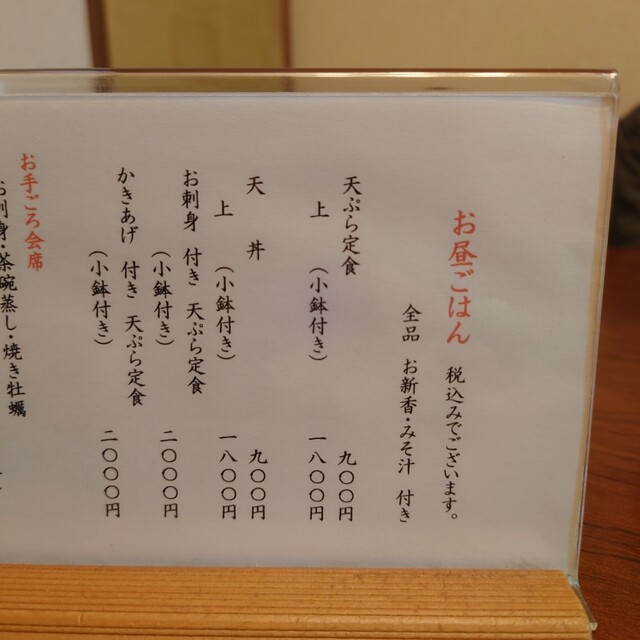 お昼ごはん 税込みでございます。
全品 お新香・みそ汁 付き
天ぷら定食 九〇〇円
上 (小鉢付き) 一八〇〇円
天丼 九〇〇円
上 (小鉢付き) 一八〇〇円
お刺身 付き 天ぷら定食
(小鉢付き) 二〇〇〇円
かきあげ 付き 天ぷら定食
(小鉢付き) 二〇〇〇円
お手ごろ会席
お刺身・茶碗蒸し・焼き牡蠣